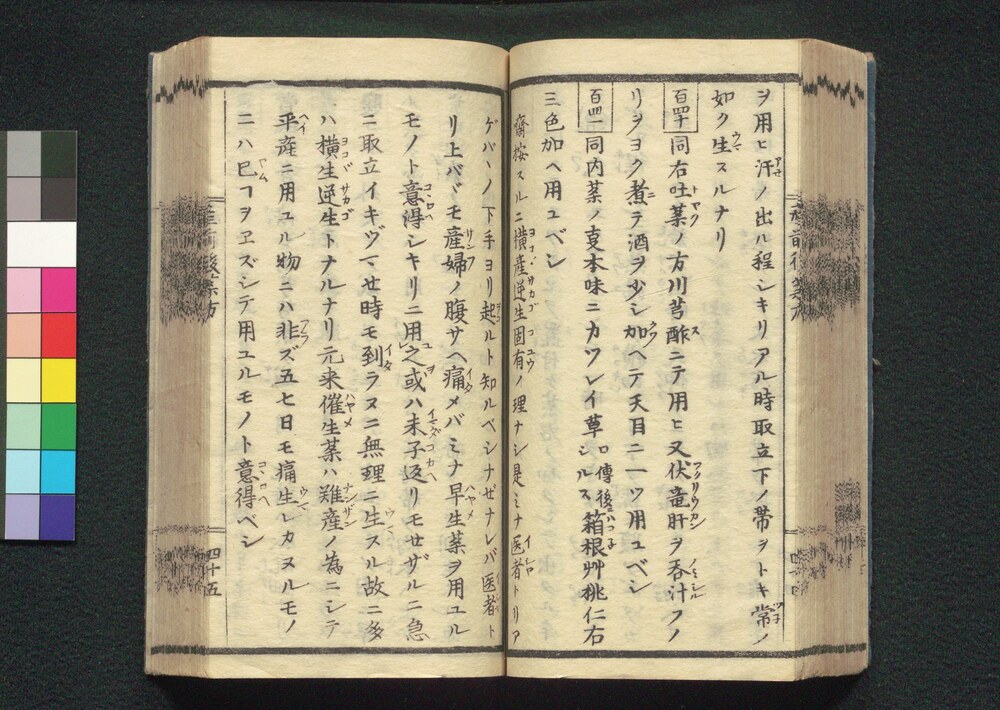 ヲ用ヒ汗ノ出ル程シキリアル時取立下ノ帯ヲトキ常ノ
如ク生スルナリ
百四十 同右吐薬ノ方川芎酢ニテ用ヒ又伏竜肝ヲ呑汁フノ
リヲヨク煮テ酒ヲ少シ加ヘテ天目ニ一ツ用ユベシ
百四一 同内薬ノ叓本味ニカツレイ草口傳後ニシルス箱根艸桃仁右
三色加ヘ用ユベシ
齋按スルニ横産逆生固有ノ理ナシ是ミナ医者トリア
ゲバヽノ下手ヨリ起ルト知ルベシナゼナレバ医者ト
リ上バヾモ産婦ノ腹サヘ痛メバミナ早生薬ヲ用ユル
モノト意得シキリニ用之或ハ未子返リモせザルニ急
ニ取立イキヅマせ時モ到ラヌニ無理ニ生スル故ニ多
ハ横生逆生トナルナリ元来催生薬ハ難産ノ為ニシテ
平産ニ用ユル物ニハ非ズ五七日モ痛生レカヌルモノ
ニハ巳ヿヲヱズシテ用ユルモノト意得ベシ
産前後薬方
四十五